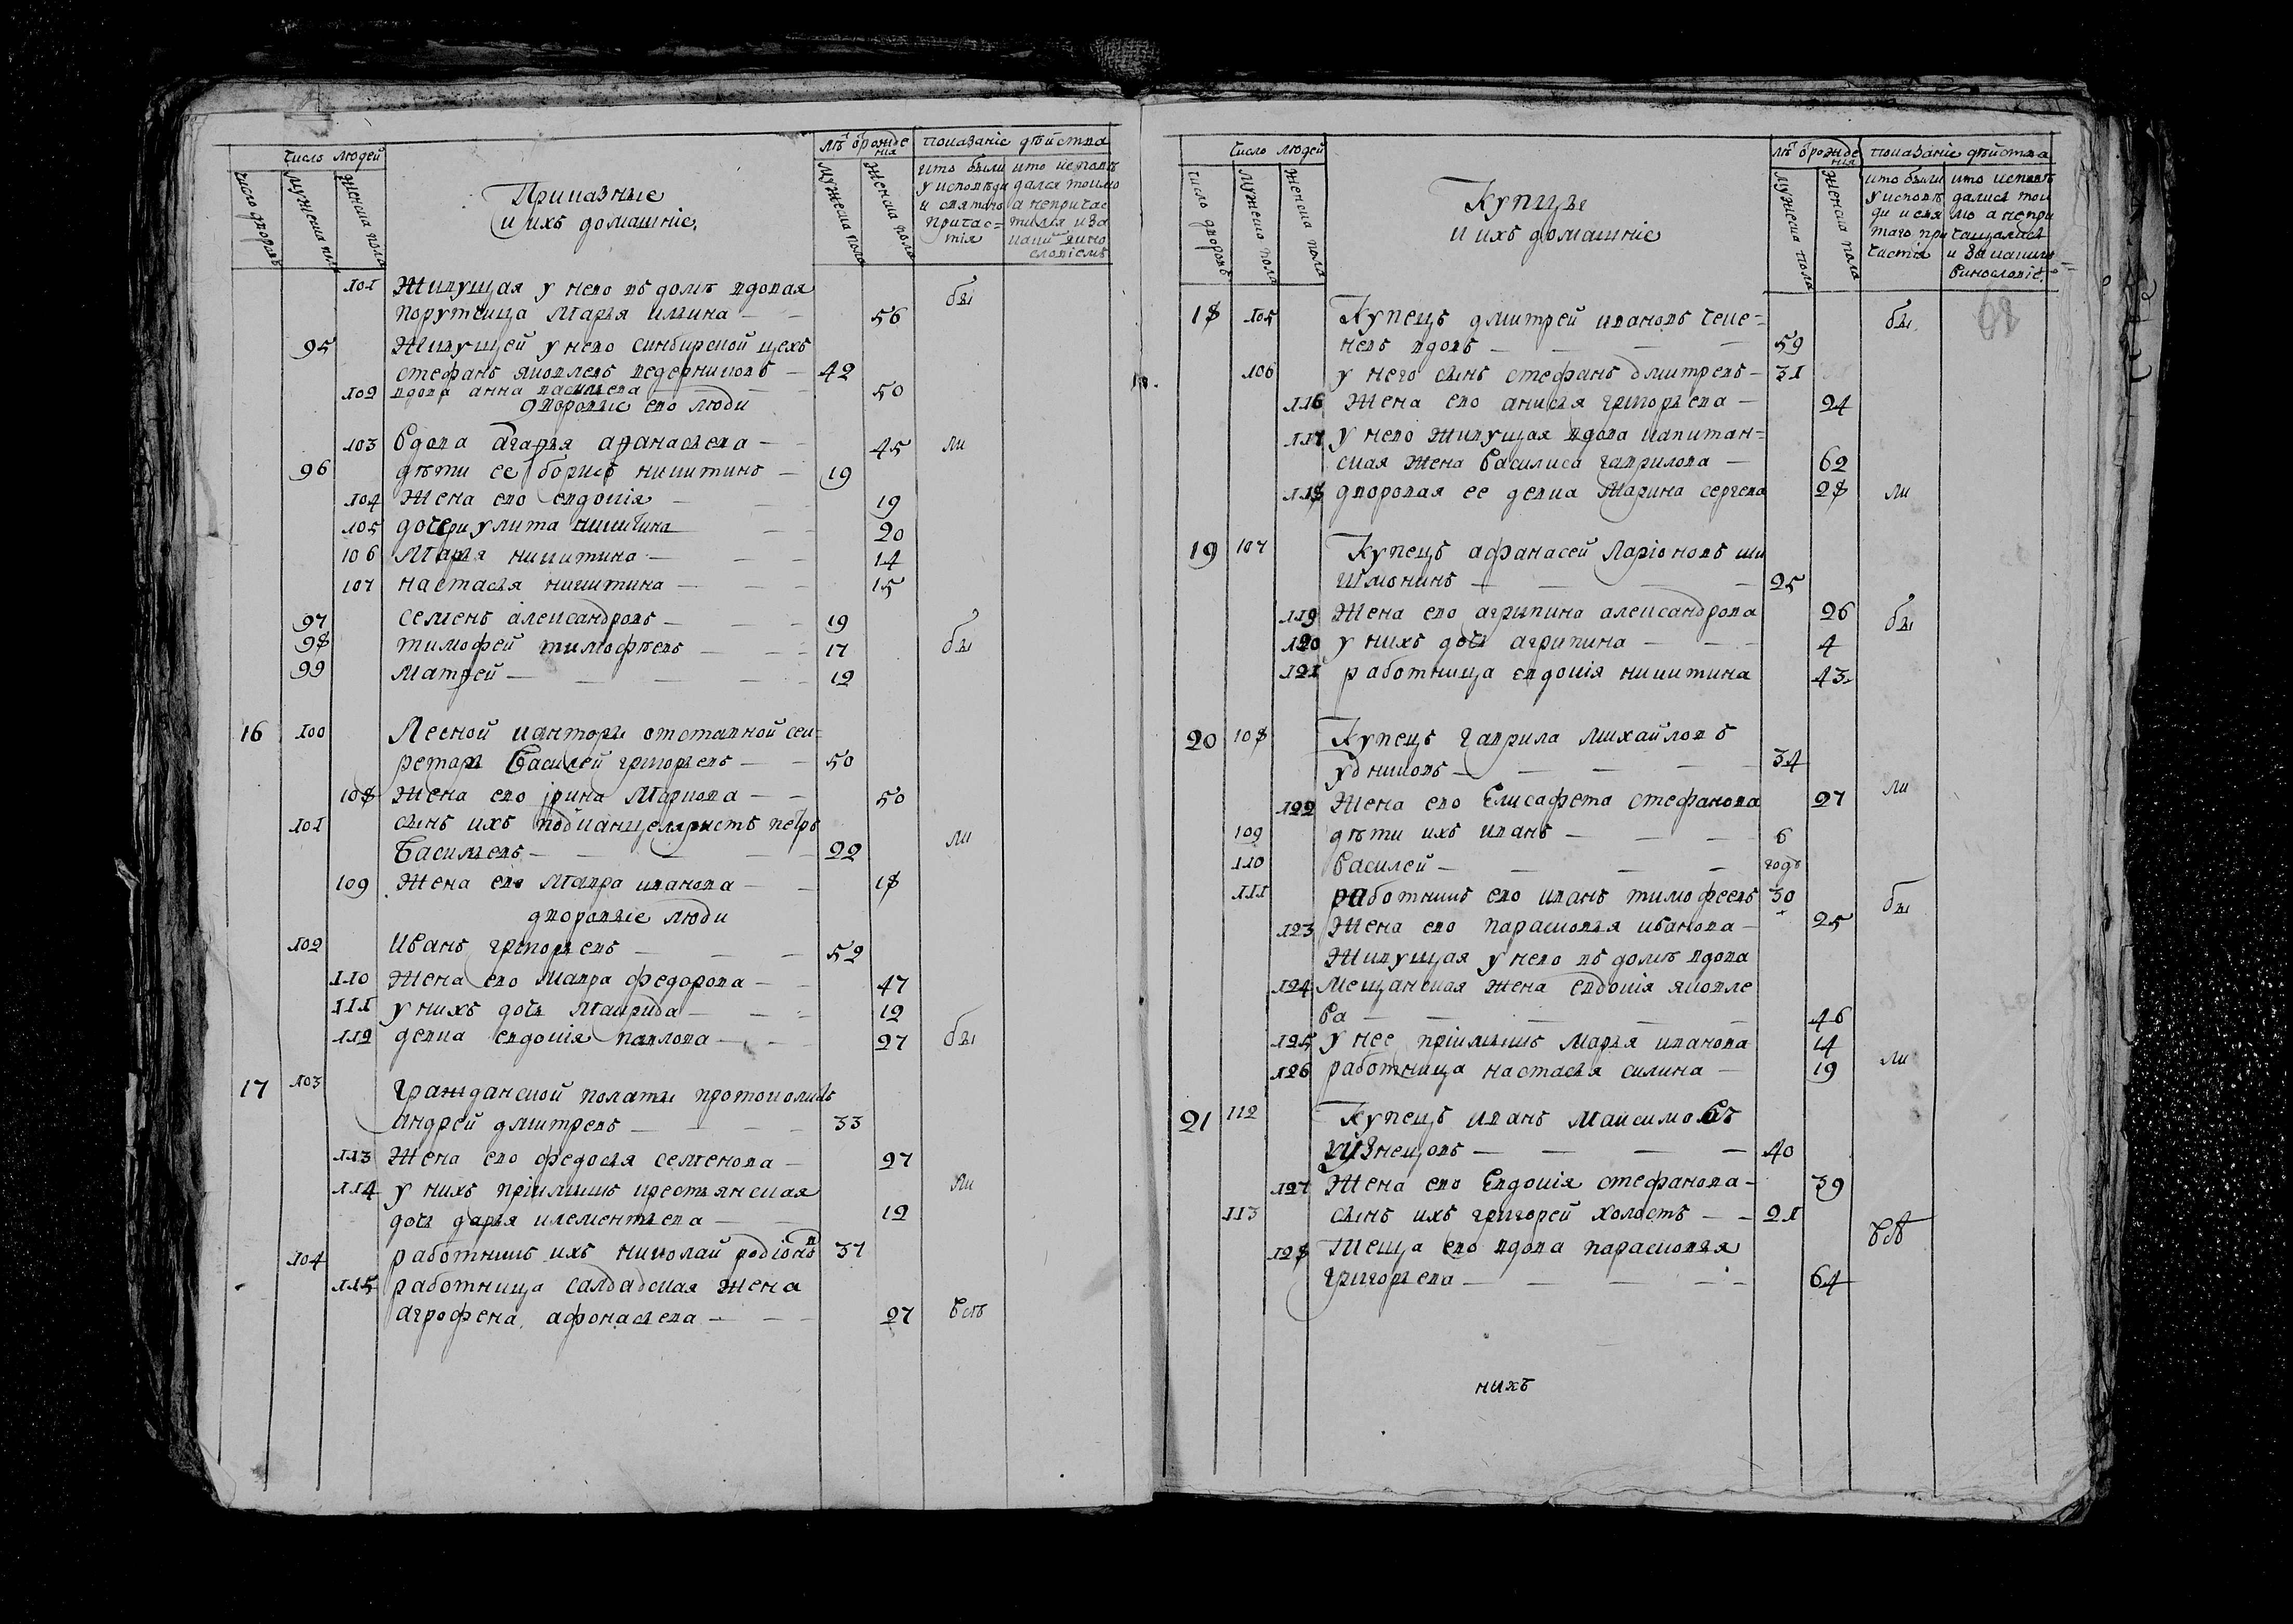 число людей
лѣтъ рожде
ния
показаніе дѣйства
число дворовъ
мужеска пола
женска пола
Приказные
и ихъ домашніе.
мужеска пола
женска пола
кто были
у исповѣди
и святаго
причас=
тія
кто исповѣ
дался токмо
а непричас
тился и за
каки вино
словіемъ
101 Живущая у него въ домѣ вдовая
порутчица Марья ильина 56 бы
95 Живущей у него синбирской цехъ
стефанъ яковлевъ ведерниковъ 42
102 вдова анна васильева 50
дворовые его люди
103 Вдова агафья афанасьева 45 ли
96 дѣти ее борисъ никитинъ 19
104 Жена его евдокія 19
105 дочери улита никитина 20
106 Марья никитина 14
107 настасья никитина 15
97 семенъ александровъ 19
98 тимофей тимофѣевъ 17 бы
99 Матфей 12
16 100 Лесной канторы отставной сек=
ретарь Василей григорьевъ 50
108 Жена его ірина Маркова 50
101 сынъ ихъ подканцеляристъ петръ
Васильевъ 22 ли
109 Жена его Мавра иванова 18
дворовые люди
102 Иванъ григорьевъ 52
110 Жена его Мавра федорова 47
111 у нихъ дочь Маврида 12
112 девка евдокія павлова 27 бы
17 103 Гражданской полаты протоколистъ
андрей дмитревъ 33
113 Жена его федосья семенова 27
114 у нихъ пріимышъ крестьянская ли
дочь дарья клементьева 12
104 работникъ ихъ николай родіоновъ 37
115 работница салдадская жена
агрофена афонасьева 27 всѣ
число людей
лѣтъ рожде
ния
показаніе дѣйства
число дворовъ
мужеска пола
женска пола
Купцы
и ихъ домашніе
мужеска пола
женска пола
кто были
у исповѣ
ди и свя
таго при
частія
кто исповѣ
дался ток
мо а непри
чащался
и за какимъ
винословіе.
18 105 Купецъ дмитрей ивановъ чече=
невъ вдовъ 59 бы
106 у него сынъ стефанъ дмитревъ 31
116 Жена его анисья григорьева 24
117 у него живущая вдова капитан=
ская жена Василиса гаврилова 62
118 дворовая ее девка Марина сергева 28 ли
19 107 Купецъ афанасей Ларіоновъ ши
шмонинъ 25
119 Жена его агрипина александрова 26 бы
120 у нихъ дочь агрипина 4
121 работница евдокія никитина 43
20 108 Купецъ гаврила михайловъ
удниковъ 34
122 Жена его Елисафета стефанова 27 ли
109 дѣти ихъ иванъ 6
110 Василей годъ
111 работникъ его иванъ тимофеевъ 30
123 Жена его парасковья иванова 25 бы
Живущая у него въ домѣ вдова
124 Мещанская жена евдокія яковле
ва 46
125 у нее пріимышъ Марья иванова 14
126 работница настасья силина 19 ли
21 112 Купецъ иванъ Максимовъ
кузнецовъ 40
127 Жена его Евдокія стефанова 39
113 сынъ ихъ григорей холостъ 21
128 Теща его вдова парасковья всѣ
григорьева 64
нихъ